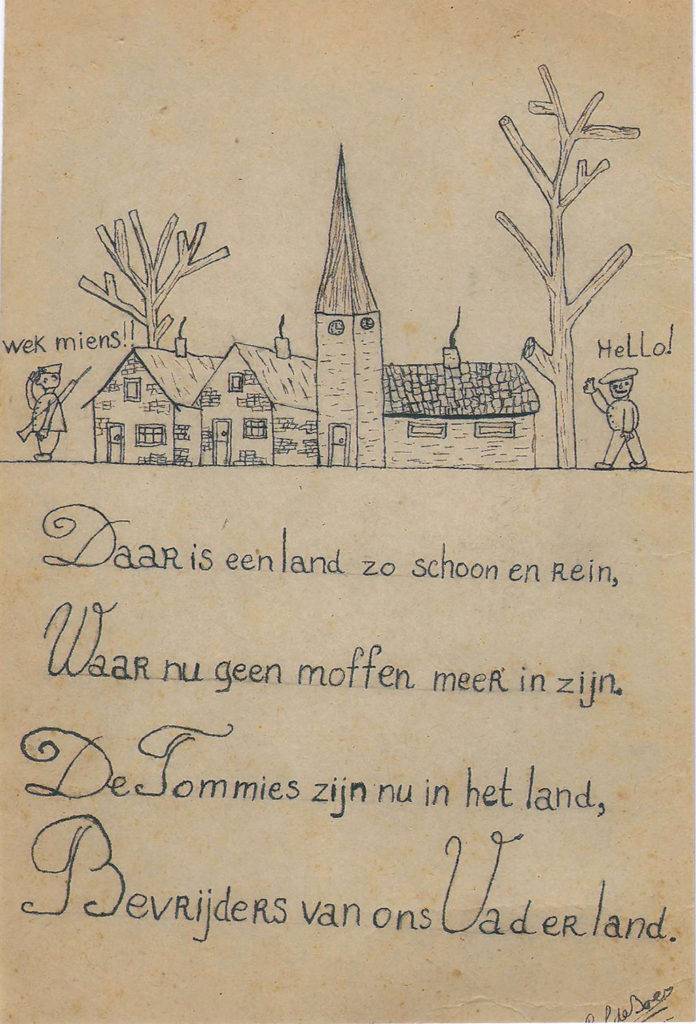 wek miens!!
Hello!
Daar is een land zo schoon en rein,
Waar nu geen moffen meer in zijn.
De Tommies zijn nu in het land,
Bevrijders van ons Vaderland.